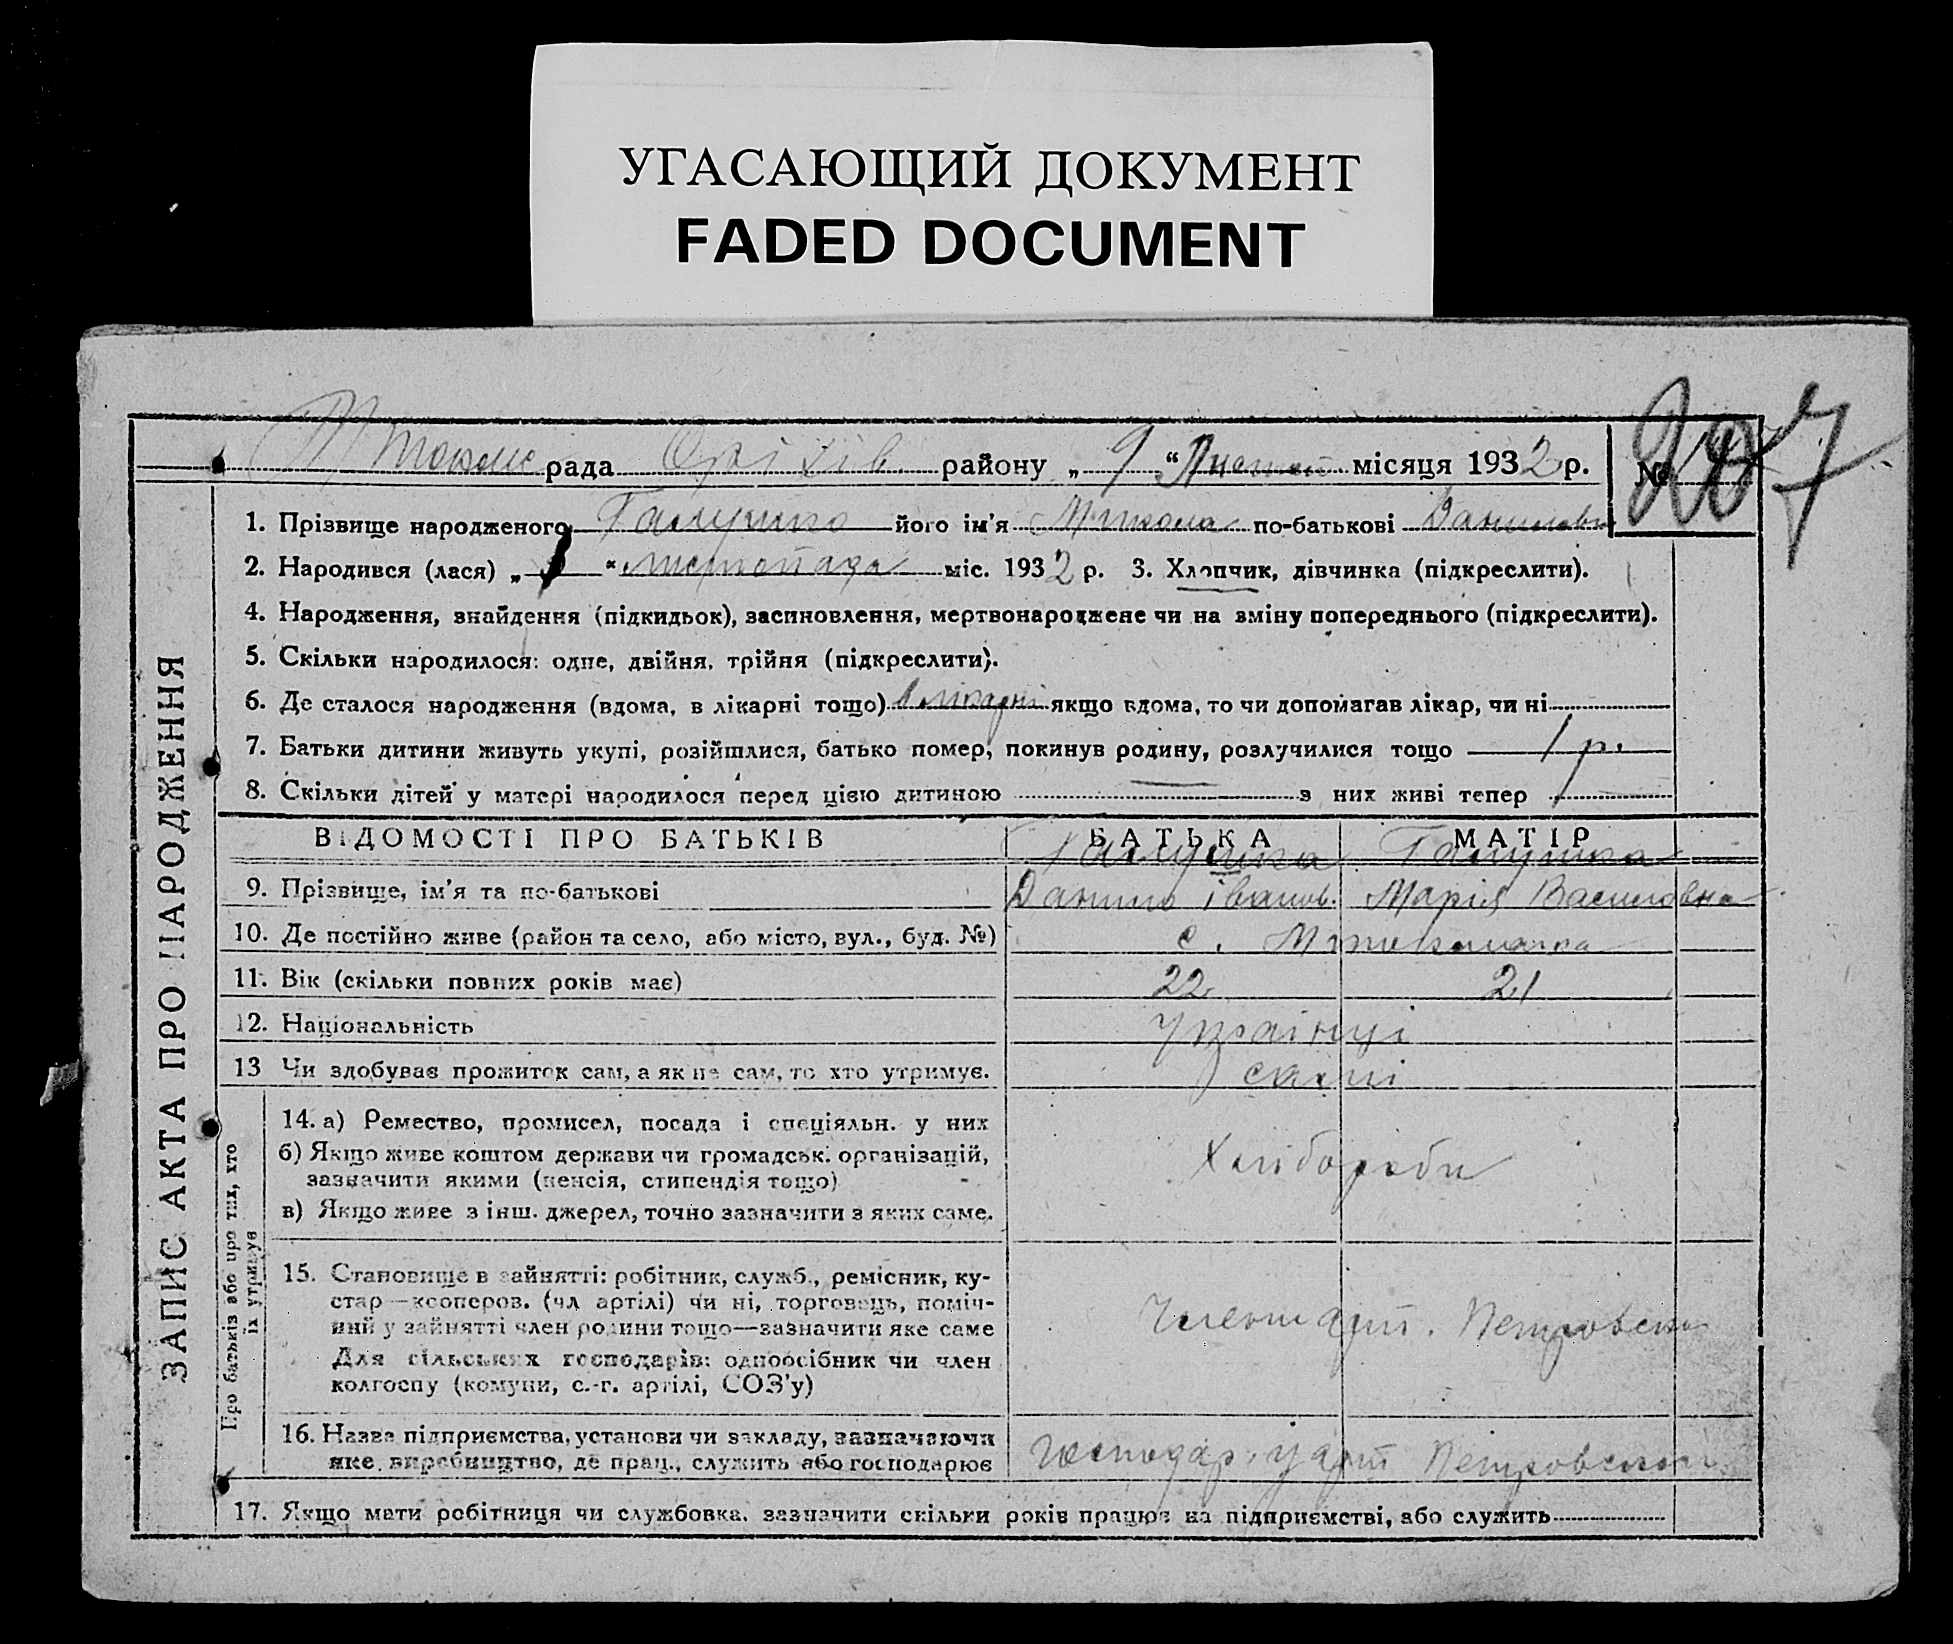 УГАСАЮЩИЙ ДОКУМЕНТ
FADED DOCUMENT
рада Оріхів району „ 9 “ місяця 1932 р. № 207
ЗАПИС АКТА ПРО НАРОДЖЕННЯ
1. Прізвище народженого Галушко його ім'я Микола по-батькові Данилович
2. Народився (лася) „ “ листопада міс. 1932 р. 3. Хлопчик, дівчинка (підкреслити).
4. Народження, знайдення (підкидьок), засиновлення, мертвонароджене чи на зміну попереднього (підкреслити).
5. Скільки народилося: одне, двійня, трійня (підкреслити).
6. Де сталося народження (вдома, в лікарні тощо) в лікарні якщо вдома, то чи допомагав лікар, чи ні
7. Батьки дитини живуть укупі, розійшлися, батько помер, покинув родину, розлучилися тощо 1 р.
8. Скільки дітей у матері народилося перед цією дитиною — з них живі тепер
ВІДОМОСТІ ПРО БАТЬКІВ БАТЬКА МАТІР
Галушка Галушка
9. Прізвище, ім'я та по-батькові Данило Іванов. Марія Василовна
10. Де постійно живе (район та село, або місто, вул., буд. №) с.
11. Вік (скільки повних років має) 22 21
12. Національність Українці
13 Чи здобуває прожиток сам, а як не сам, то хто утримує. самі
Про батьків або про тих, хто
їх утримує
14. а) Ремество, промисел, посада і спеціяльн. у них
б) Якщо живе коштом держави чи громадськ. організацій,
зазначити якими (пенсія, стипендія тощо)
в) Якщо живе з інш. джерел, точно зазначити з яких саме.
Хлібороби
15. Становище в зайнятті: робітник, служб., ремісник, ку-
стар—кооперов. (чл артілі) чи ні, торговець, поміч-
ний у зайнятті член родини тощо—зазначити яке саме
Для сільських господарів: одноосібник чи член
колгоспу (комуни, с.-г. артілі, СОЗ'у)
Члени арт. Петровсько
16. Назва підприємства, установи чи закладу, зазначаючи
яке виробництво, де прац., служить або господарює
Господар. у арт Петровсько
17. Якщо мати робітниця чи службовка, зазначити скільки років працює на підприємстві, або служить